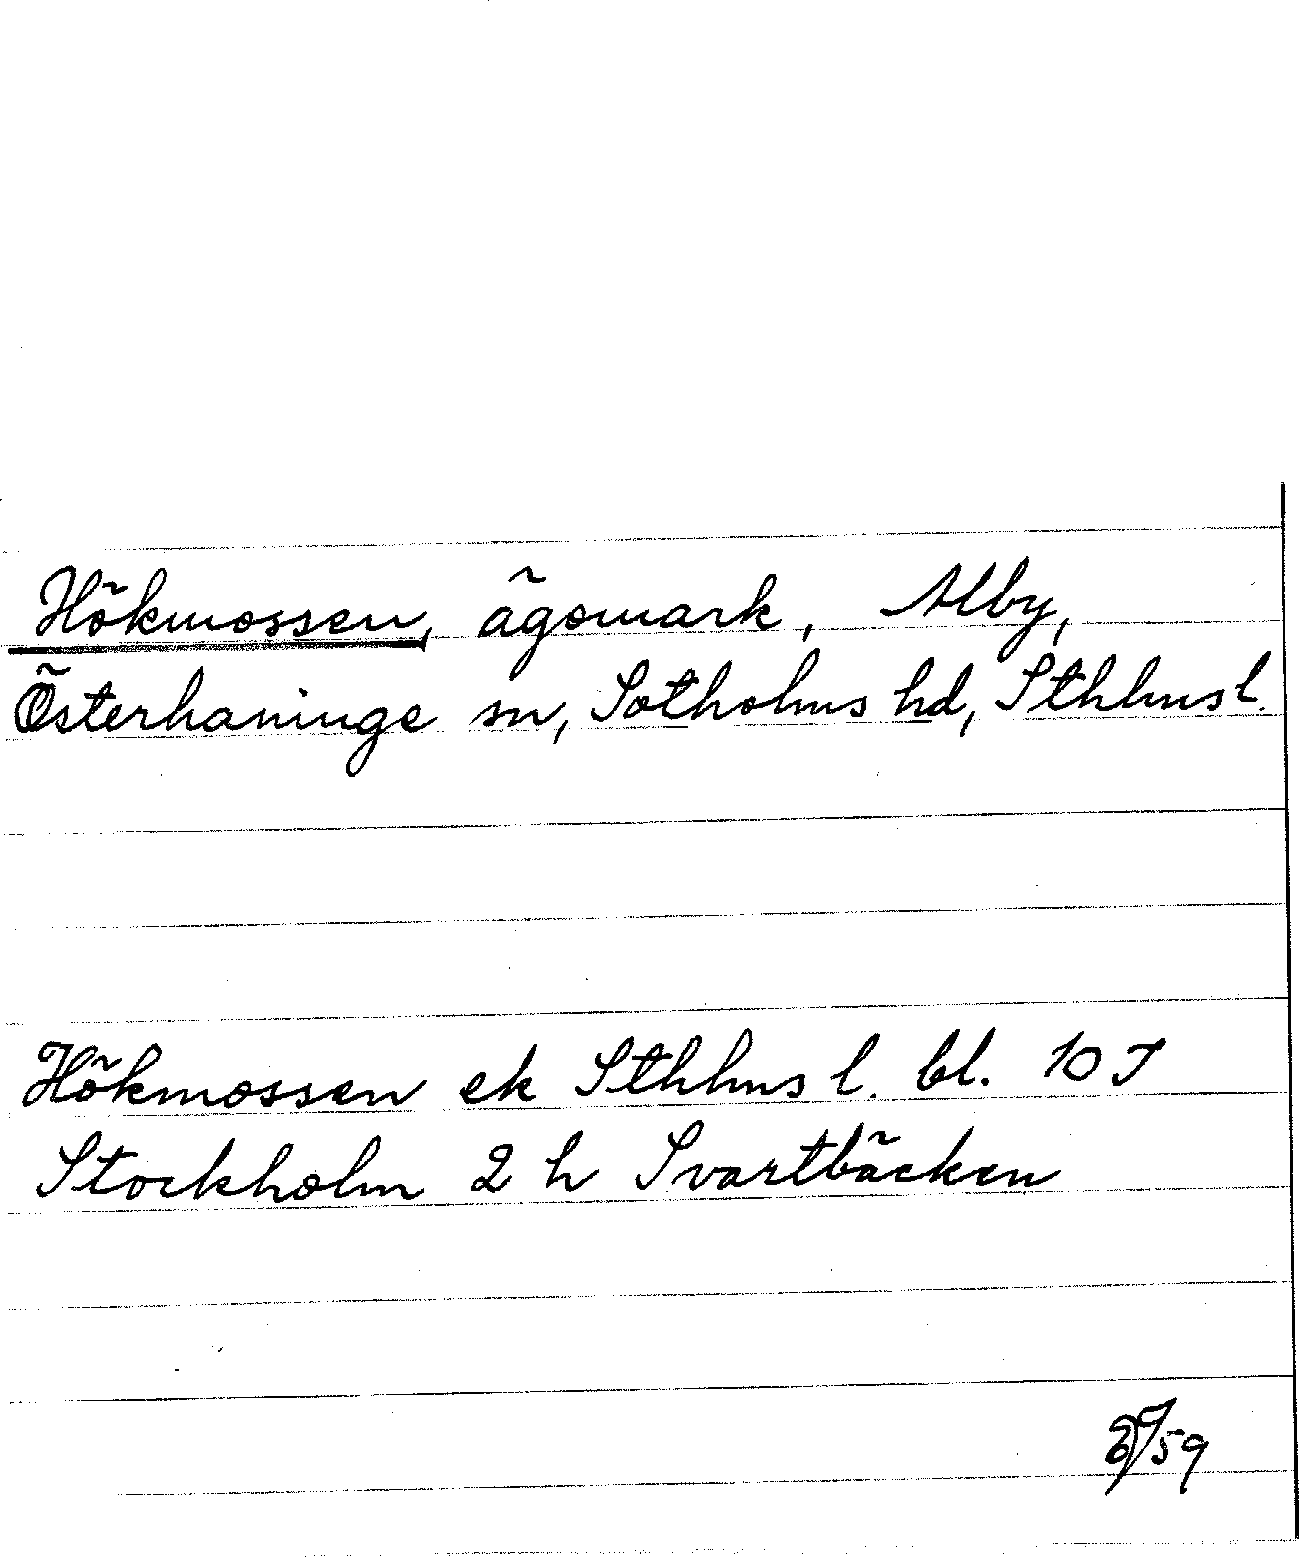 Hökmossen, ägomark, Alby,
Österhaninge sn, Sotholms hd, Sthlms l.
Hökmossen ek Sthlms l. bl. 10 I
Stockholm 2 h Svartbäcken
59